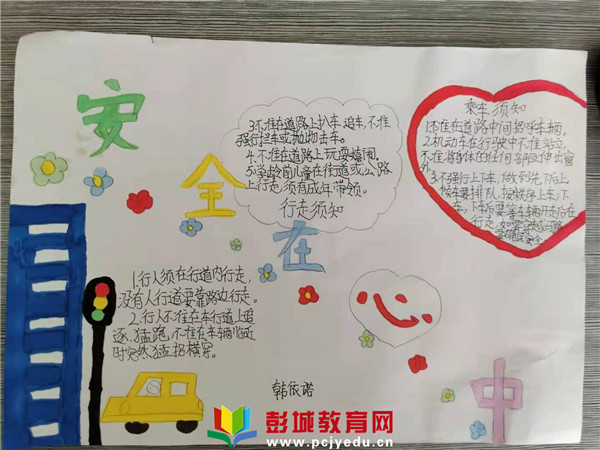 安
全
在
中
3.不准在道路上扒车、追车,不准
强行拦车或抛物击车。
4.不准在道路上玩耍、嬉闹。
5.学龄前儿童在街道或公路
上行走,须有成年带领。
行走须知
乘车须知
1.不准在道路中间招呼车辆。
2.机动车在行驶中不准站立,
不准将身体的任何部位伸出窗
外。
3.不强行上下车,做到先下后上
候车要排队,按秩序上车;下
车
1.行人须在行道内行走,
没有人行道要靠路边行走。
2.行人不准在车行道上追
逐、猛跑,不准在车辆临近
时突然猛拐横穿。
韩依诺
彭城教育网
www.pcjyedu.cn